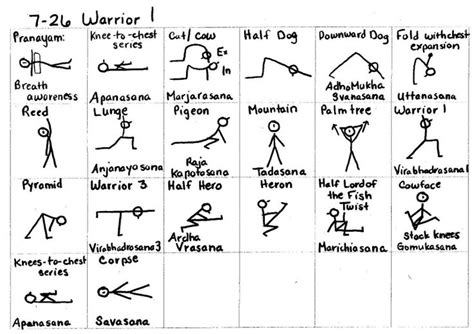 7-26 Warrior 1
Pranayam:
Breath
awareness
Knee-to-chest
series
Apanasana
Cat/cow
Ex
In
Marjarasana
Half Dog
Downward Dog
Adho Mukha
Svanasana
Fold with chest
expansion
Uttanasana
Reed
Lunge
Anjanayasana
Pigeon
Raja
Kapotasana
Mountain
Tadasana
Palm tree
Warrior 1
Virabhadrasana 1
Pyramid
Warrior 3
Virabhadrasana 3
Half Hero
Ardha
Vrasana
Heron
Half Lord of
the Fish
Twist
Marichiasana
Cowface
Stack knees
Gomukasana
Knees-to-chest
series
Apanasana
Corpse
Savasana